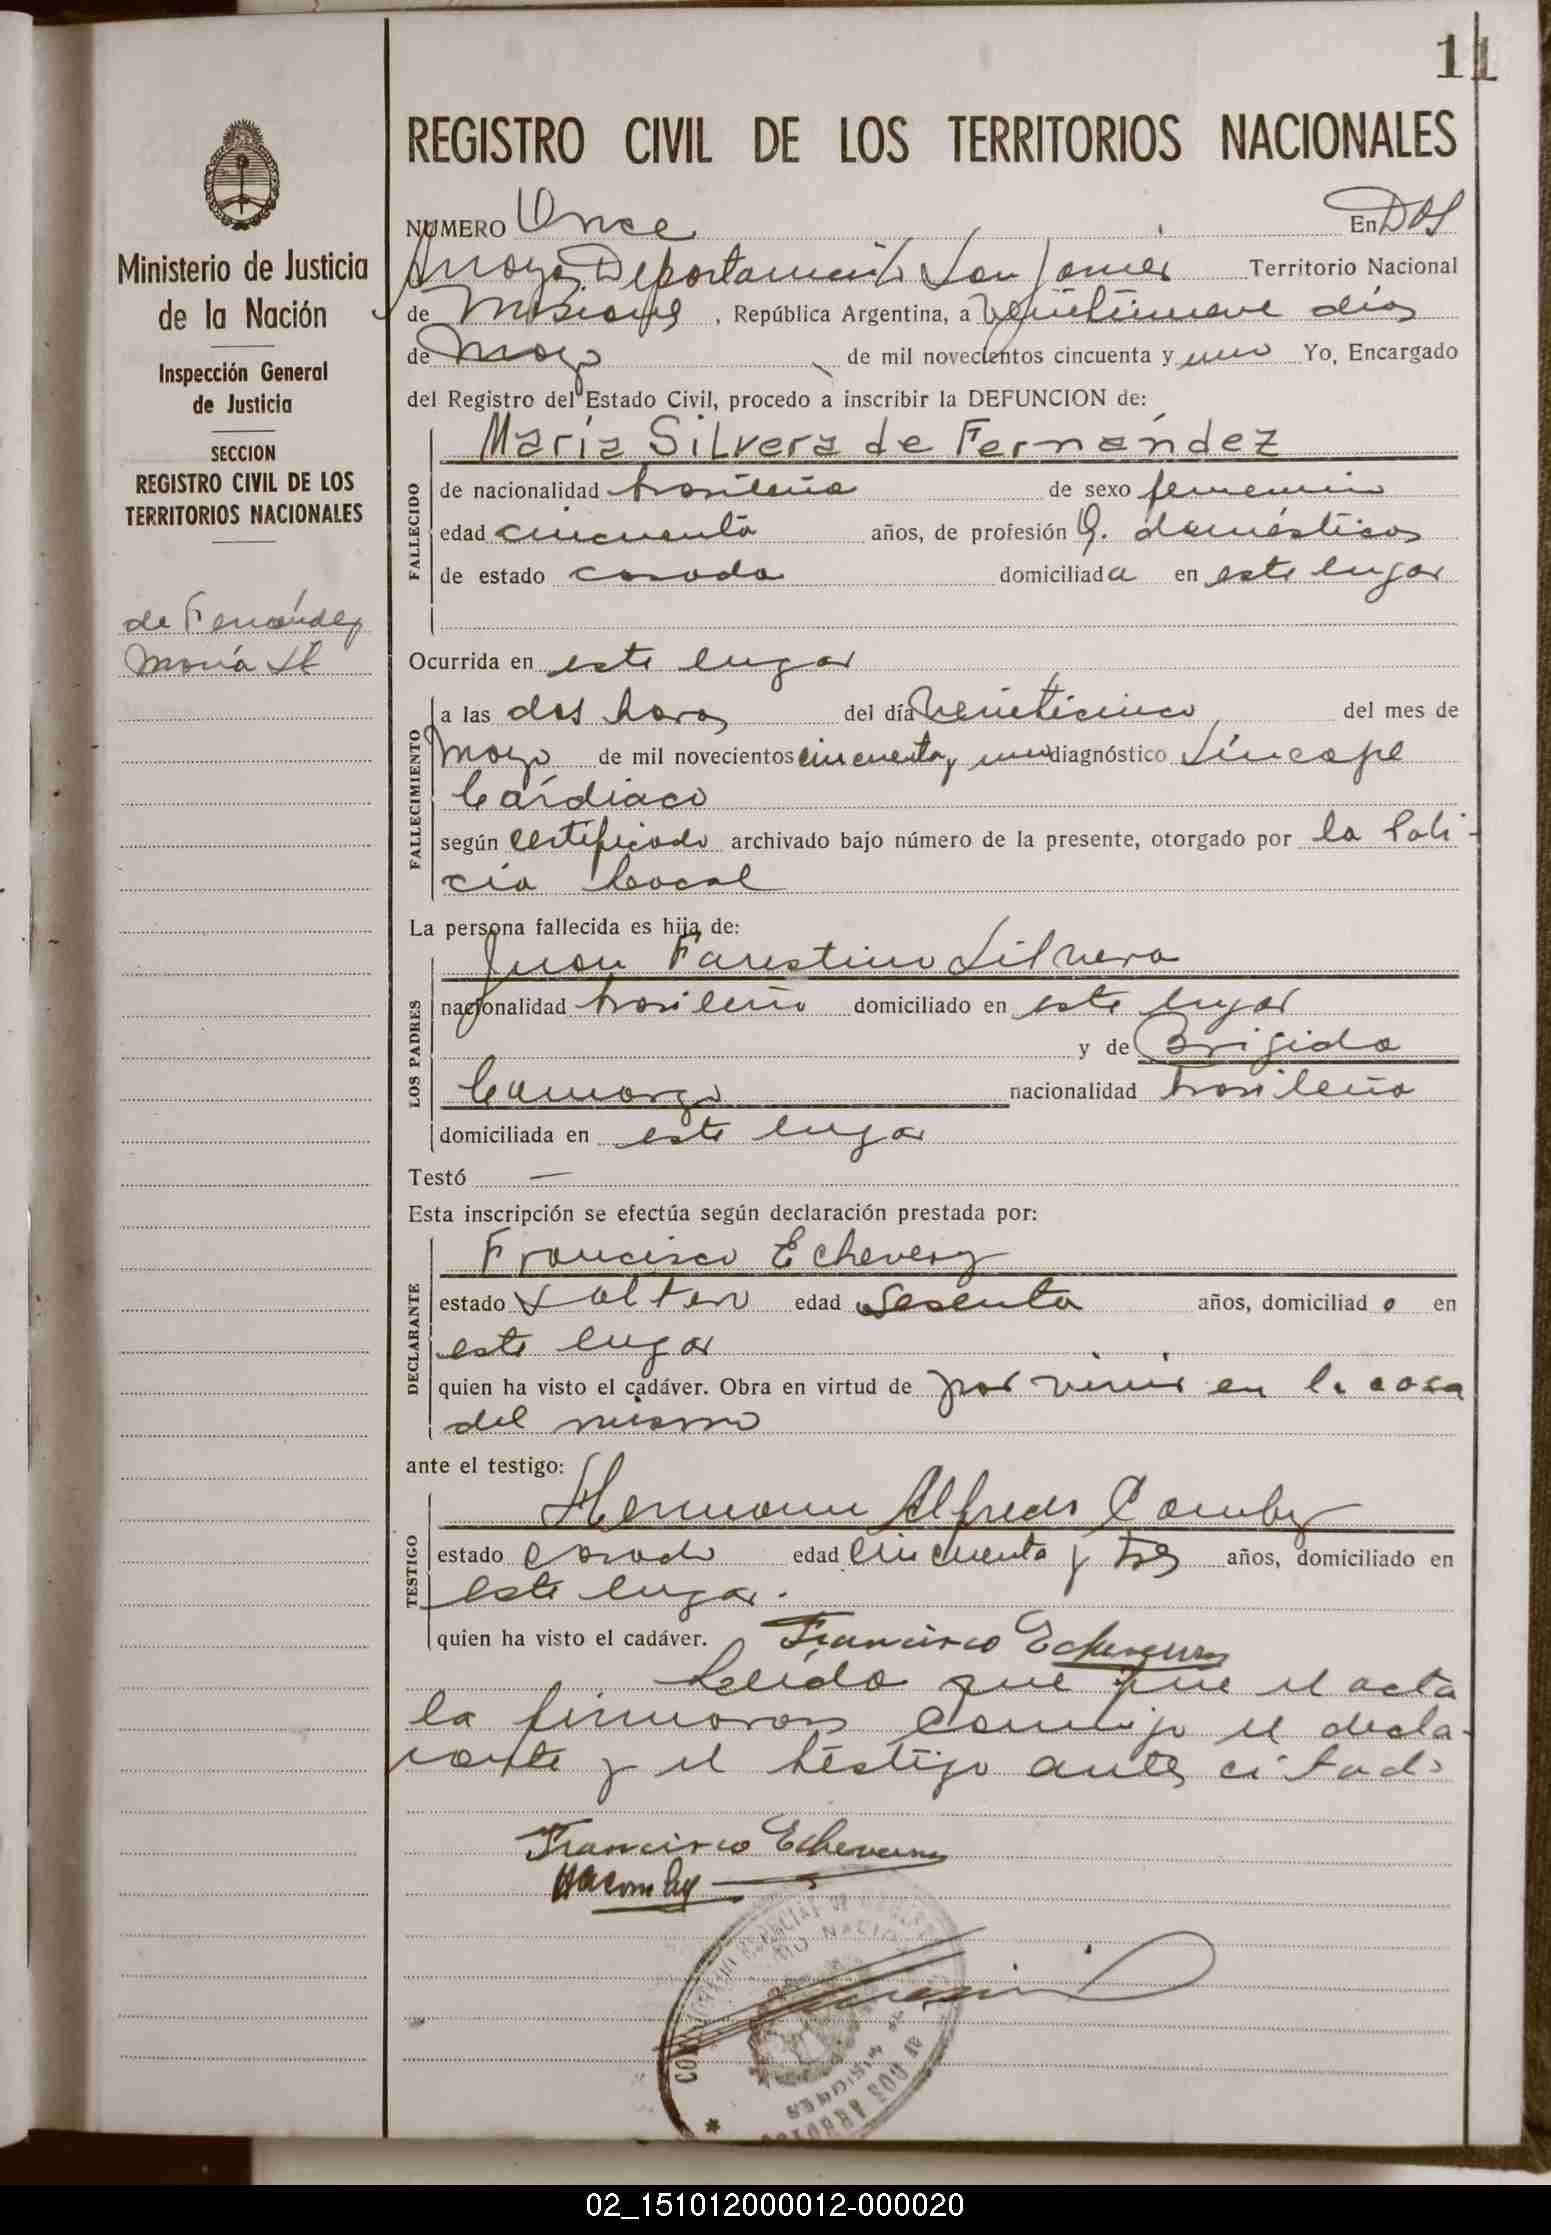 11
REGISTRO CIVIL DE LOS TERRITORIOS NACIONALES
Ministerio de Justicia
de la Nación
Inspección General
de Justicia
SECCION
REGISTRO CIVIL DE LOS
TERRITORIOS NACIONALES
de Fernández
María St
NUMERO Once En Dos
Arroyos Departamento San Javier Territorio Nacional
de Misiones, República Argentina, a veintinueve dias
de Mayo de mil novecientos cincuenta y uno Yo, Encargado
del Registro del Estado Civil, procedo a inscribir la DEFUNCION de:
María Silvera de Fernández
FALLECIDO
de nacionalidad brasileña de sexo femenino
edad cincuenta años, de profesión Q. domésticos
de estado casada domiciliada en este lugar
Ocurrida en este lugar
FALLECIMIENTO
a las dos horas del día veinticinco del mes de
Mayo de mil novecientos cincuenta y uno diagnóstico Síncope
Cárdiaco
según certificado archivado bajo número de la presente, otorgado por la Poli-
cia Local
La persona fallecida es hija de:
LOS PADRES
Juan Faustino Silvera
nacionalidad brasileño domiciliado en este lugar
y de Brigida
Camargo nacionalidad brasileña
domiciliada en este lugar
Testó —
Esta inscripción se efectúa según declaración prestada por:
DECLARANTE
Francisco Echeverry
estado Soltero edad Sesenta años, domiciliado en
este lugar
quien ha visto el cadáver. Obra en virtud de por vivir en la casa
del mismo
ante el testigo:
TESTIGO
Hermann Alfredo Comby
estado casado edad cincuenta y tres años, domiciliado en
este lugar.
quien ha visto el cadáver. Francisco Echeverry
Leída que fue el acta
la firmaron conmigo el decla-
rante y el téstigo antes citado
Francisco Echeverry
HAComby
MISIONES
02_151012000012-000020